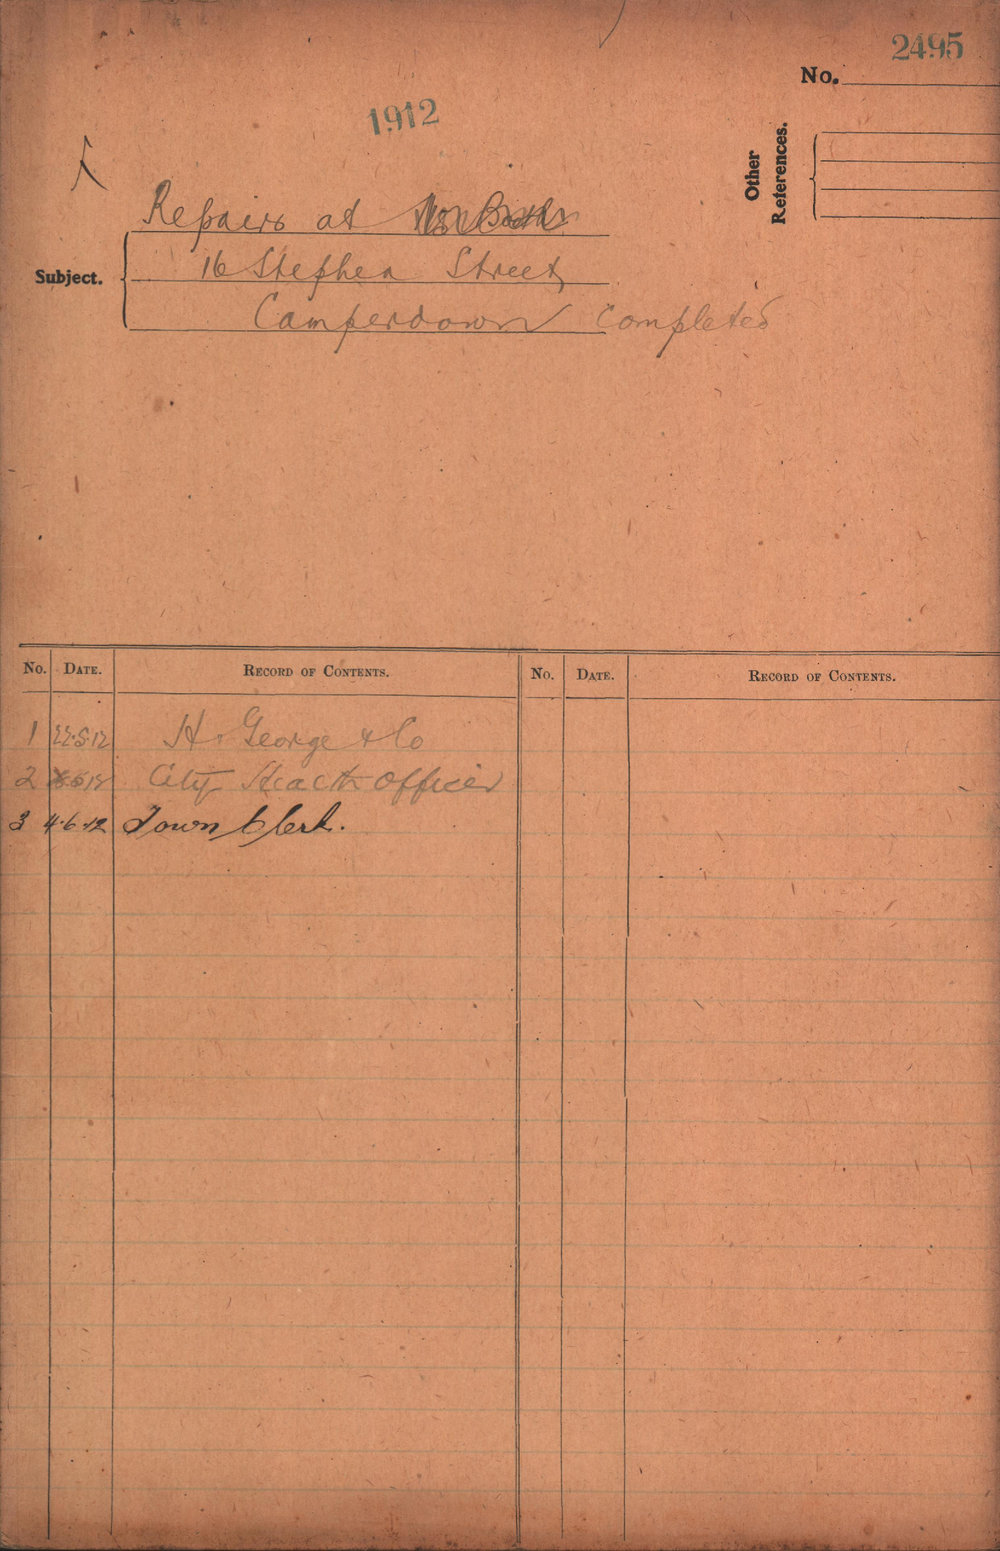 2495
No.
1912
Other References.
Repairs at
Subject.
16 Stephen Street
Camperdown completed
No. DATE. RECORD OF CONTENTS. No. DATE. RECORD OF CONTENTS.
1 22.5.12 H. George & Co
2 City Health Officer
3 4.6.12 Town Clerk.